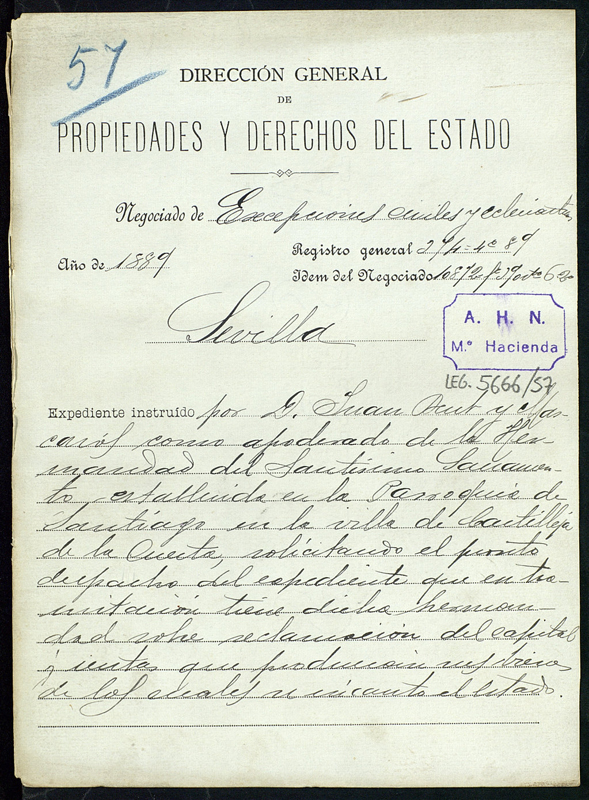 57
DIRECCIÓN GENERAL
DE
PROPIEDADES Y DERECHOS DEL ESTADO
Negociado de Excepciones civiles y eclesiasticas
Año de 1889
Registro general
Idem del Negociado
Sevilla
A. H. N.
Mº Hacienda
LEG. 5666/57
Expediente instruído por D. Juan y Mas-
carós como apoderado de la Her-
mandad del Santísimo Sacramen-
to establecida en la Parroquia de
Santiago en la villa de Castilleja
de la Cuesta, solicitando el pronto
despacho del expediente que en tra-
mitación tiene dicha herman-
dad sobre reclamación del capital
y rentas que producian sus bienes
de los cuales se incautó el estado.